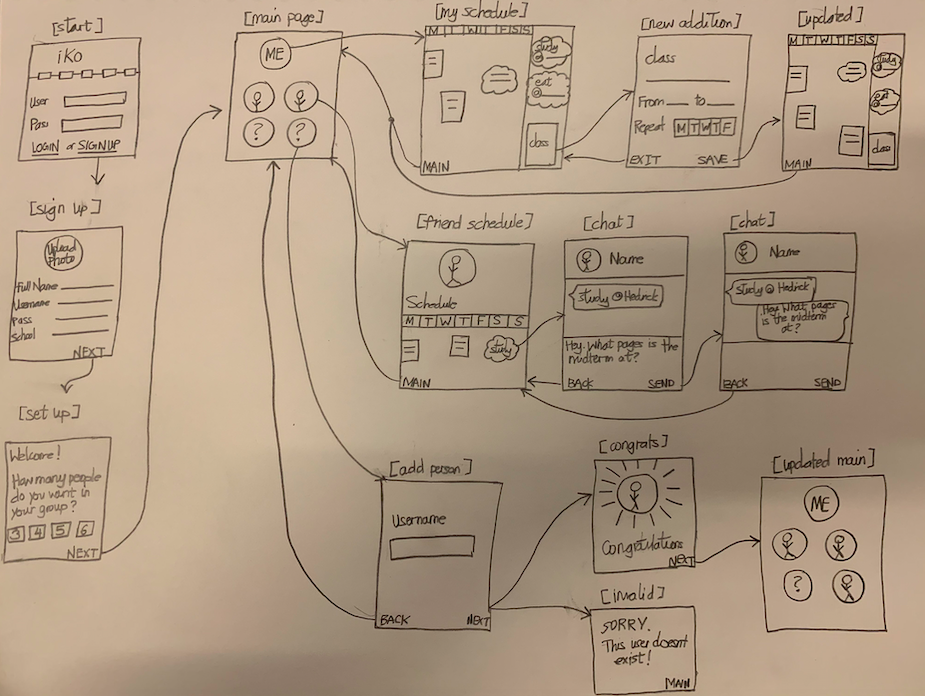 [start]
iKo
User
Pass
LOGIN or SIGNUP
[sign up]
Upload
Photo
Full Name
Username
Pass
School
NEXT
[set up]
Welcome!
How many people
do you want in
your group?
3 4 5 6
NEXT
[main page]
ME
? ?
[my schedule]
M T W T F S S
study
@
eat
@
class
MAIN
[new addition]
class
From to
Repeat M T W T F
EXIT SAVE
[updated]
M T W T F S S
study
@
eat
@
class
MAIN
[friend schedule]
Schedule
M T W T F S S
study
MAIN
[chat]
Name
study @ Hedrick
Hey. What pages is the
midterm at?
BACK SEND
[chat]
Name
study @ Hedrick
Hey. What pages
is the midterm
at?
BACK SEND
[add person]
Username
BACK NEXT
[congrats]
Congratulations
NEXT
[invalid]
SORRY.
This user doesn't
exist!
MAIN
[updated main]
ME
?